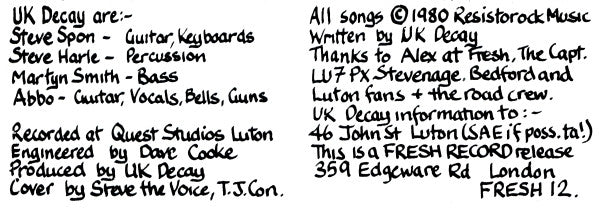 UK Decay are:-
Steve Spon - Guitar, Keyboards
Steve Harle - Percussion
Martyn Smith - Bass
Abbo - Guitar, Vocals, Bells, Guns
Recorded at Quest Studios Luton
Engineered by Dave Cooke
Produced by UK Decay
Cover by Steve the Voice, T.J.Con.
All songs © 1980 Resistorock Music
Written by UK Decay
Thanks to Alex at Fresh, The Capt.
LU7 PX. Stevenage, Bedford and
Luton fans + the road crew.
UK Decay information to:-
46 John St Luton (SAE if poss. ta!)
This is a FRESH RECORD release
359 Edgeware Rd London
FRESH 12.